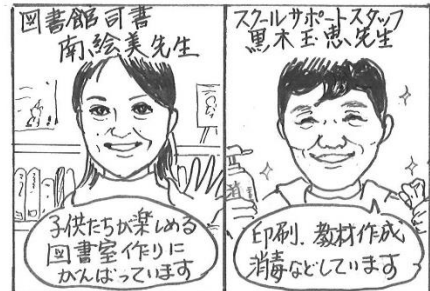 図書館司書
南絵美先生
子供たちが楽しめる
図書室作りに
がんばっています
スクールサポートスタッフ
黒木玉恵先生
消
印刷、教材作成
消毒などしています